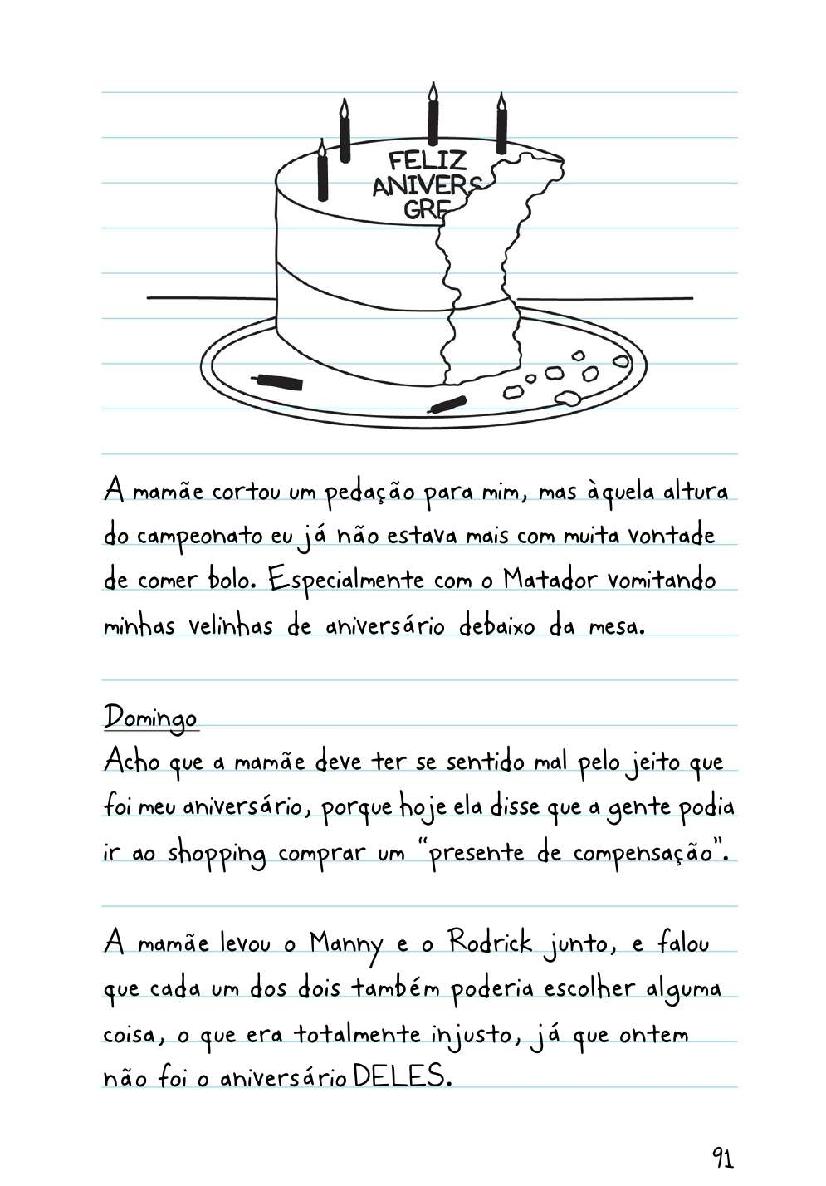 FELIZ
ANIVERS
GRE
A mamãe cortou um pedação para mim, mas àquela altura
do campeonato eu já não estava mais com muita vontade
de comer bolo. Especialmente com o Matador vomitando
minhas velinhas de aniversário debaixo da mesa.
Domingo
Acho que a mamãe deve ter se sentido mal pelo jeito que
foi meu aniversário, porque hoje ela disse que a gente podia
ir ao shopping comprar um “presente de compensação”.
A mamãe levou o Manny e o Rodrick junto, e falou
que cada um dos dois também poderia escolher alguma
coisa, o que era totalmente injusto, já que ontem
não foi o aniversário DELES.
91